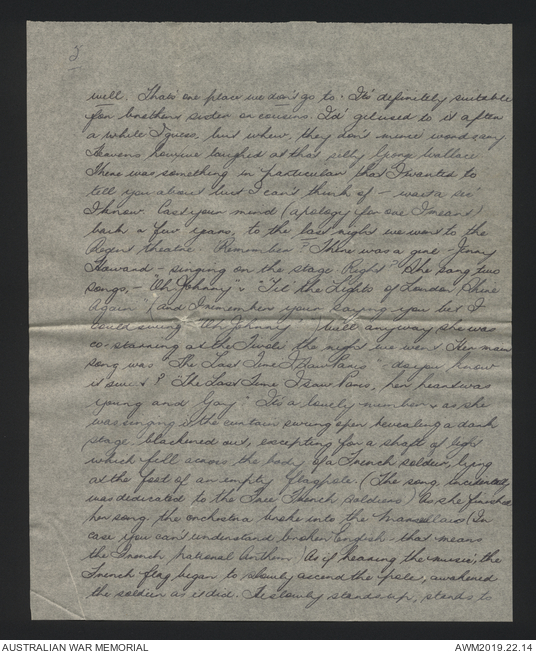 2
well. That's one place we don't go to. It's definitely suitable
for brothers sister or cousins. I'd get used to it after
a while I guess, but whew, they don't mince words any
Heavens how we laughed at that silly George Wallace
There was something in particular that I wanted to
tell you about but I can't think of - wait a sec'
I know. Cast your mind (apology for one I mean)
back a few years, to the last night we went to the
Regent theatre. Remember? There was a girl - Jenny
Howard - singing on the stage. Right? She song two
songs, - "Oh Johnny" & "Till the Lights of London Shine
Again" (and I remember your saying you bet I
could swing "Oh Johnny") Well anyway she was
co-starring at the Tivoli the night we went. Her main
song was "The Last Time I Saw Paris" do you know
it sweet? "The Last Time I saw Paris, her heart was
young and gay". It's a lovely number & as she
was singing it the curtain swung open revealing a dark
stage blackened out, excepting for a shaft of light
which fell across the body of a French soldier, lying
at the foot of an empty flagpole. (The song, incidentally
was dedicated to the Free French soldiers) As she finished
her song the orchestra broke into the Marsellais (In
case you can't understand broken English that means
the French national Anthem) As if hearing the music, the
French flag began to slowly ascend the pole, awakened
the soldier as it did. He slowly stands up, stands to
AUSTRALIAN WAR MEMORIAL
AWM2019.22.14